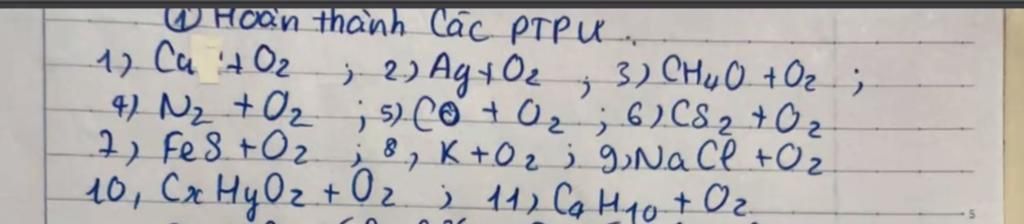 ① Hoàn thành Các PTPU.
1) Ca + O2 ; 2) Ag + O2 ; 3) CH4O + O2 ;
4) N2 + O2 ; 5) CO + O2 ; 6) CS2 + O2
7) FeS + O2 ; 8, K + O2 ; 9, NaCl + O2
10, CxHyO2 + O2 ; 11) C4H10 + O2
5